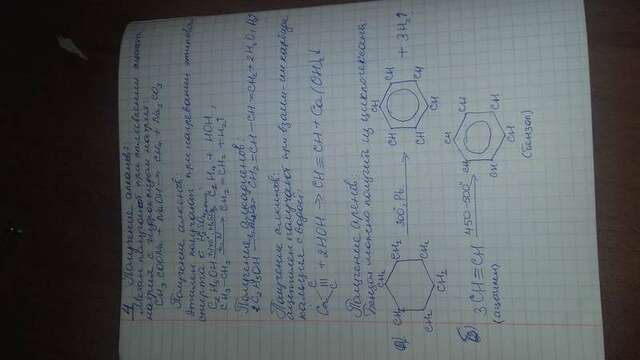 4. Получение алканов:
Метан получают при сплавлении ацетата
натрия с гидроксидом натрия:
CH₃COONa + NaOH → CH₄ + Na₂CO₃
Получение алкенов:
Этилен получают при нагревании этилового
спирта с H₂SO₄
C₂H₅OH → C₂H₄ + HOH,
CH₃-CH₃ → CH₂=CH₂ + H₂↑
Получение алкадиенов:
2C₂H₅OH → CH₂=CH-CH=CH₂+2H₂O+H₂↑
Получение алкинов:
ацетилен получают при взаим-ии карбида
кальция с водой:
Ca C≡C + 2HOH → CH≡CH + Ca(OH)₂↓
Получение аренов:
Бензол можно получить из циклогексана:
а) CH₂ CH₂ CH₂ CH₂ CH₂ CH₂ 300°, Pt → CH CH CH CH CH CH + 3H₂↑
б) 3CH≡CH 450-500° → CH CH CH CH CH CH
(ацетилен) (бензол)